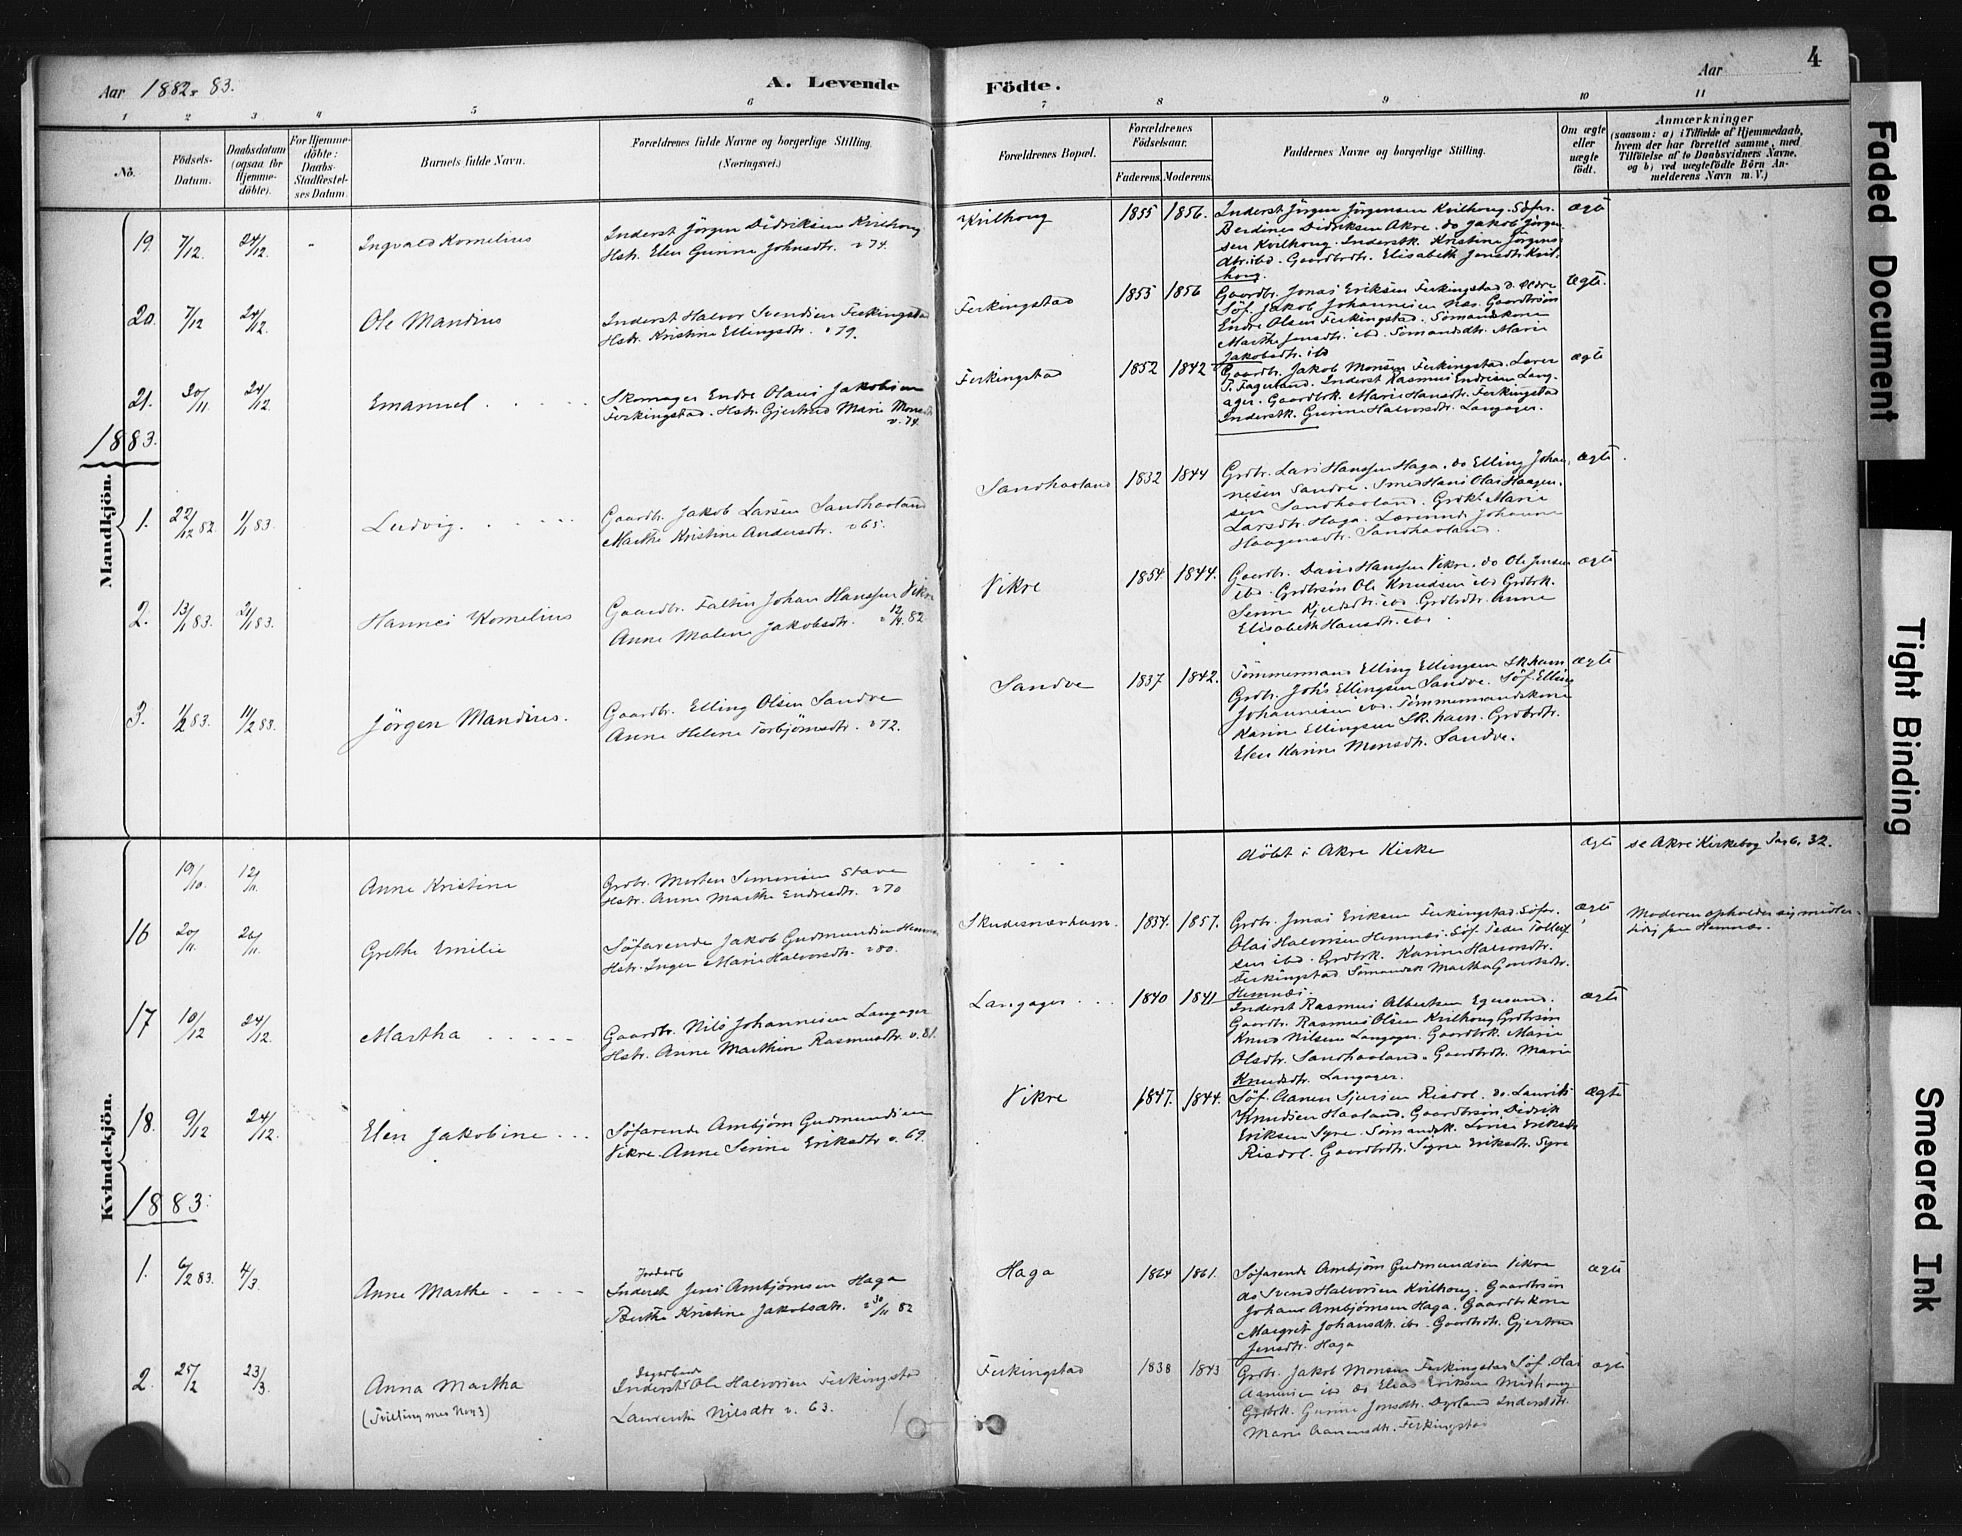 Aar 1882-83.
A. Levende
Födte.
Aar
4
1 2 3 4 5 6 7 8 9 10 11
No.
Födsels-
Datum.
Daabsdatum
(ogsaa for
Hjemme-
döbte).
For Hjemme-
döbte:
Daabs-
Stadfæstel-
ses Datum.
Barnets fulde Navn.
Forældrenes fulde Navne og borgerlige Stilling.
(Næringsvei.)
Forældrenes Bopæl.
Forældrenes
Födselsaar.
Faderens. Moderens.
Faddernes Navne og borgerlige Stilling.
Om ægte
eller
uægte
födt.
Anmærkninger
(saasom: a) i Tilfælde af Hjemmedaab,
hvem der har forrettet samme, med
Tilföielse af to Daabsvidners Navne,
og b) ved uægtefödte Börn An-
melderens Navn m. V.)
Mandkjön.
19. 7/12. 24/12. Ingvald Kornelius
Inderst Jörgen Didriksen Kvilhoug
Hstr. Elen Gurine Johnsdtr. v 74.
Kvilhoug 1855 1856.
Inderst Jörgen Jörgensen Kvilhoug. Söfar.
Berdines Didriksen Akre. do Jakob Jörgen-
sen Kvilhoug. Inderstk. Kristine Jörgens-
dtr. ibd. Gaardbrdtr. Elisabeth Jonsdtr. Kvil-
houg.
ægte
20. 7/12 24/12. Ole Mandius
Inderst Halvor Svendsen Ferkingstad
Hstr. Kristine Ellingsdtr. v 79.
Ferkingstad 1855 1856
Gaardbr. Jonas Eriksen Ferkingstad d. ældre
Söf. Jakob Johannesen Næs. Gaardbrsön
Endre Olsen Ferkingstad. Sömandskone
Marthe Jensdtr. ibd. Sömandsdtr. Marie
Jakobsdtr. ibd
Ægte.
21. 20/11. 24/12. Emanuel
Skomager Endre Olaus Jakobsen
Ferkingstad. Hstr. Gjertrud Marie Monsdtr
v. 74.
Ferkingstad 1852 1842
Gaardbr. Jakob Monsen Ferkingstad. Lærer
T. Fagerland. Inderst Rasmus Endresen Lang-
ager. Gaardbrk. Marie Hansdtr. Ferkingstad
Inderstk. Gurine Halvorsdtr. Langager.
ægte
1883.
1. 22/12 82. 1/1 83. Ludvig.
Gaardbr. Jakob Larsen Sandhaaland
Marthe Kristine Andersdtr. v 65.
Sandhaaland 1832 1844
Grdbr. Lars Hanssen Haga. do Elling Johan-
nesen Sandve. Smed Hans Olai Haagen-
sen Sandhaaland. Grdbk. Marie
Larsdtr. Haga. Lærerinde Johanne
Haagensdtr. Sandhaaland.
ægte.
2. 13/1 83. 21/1 83. Hannes Kornelius
Gaardbr. Faltin Johan Hanssen Vikre
Anne Malene Jakobsdtr. v 12/4. 82
Vikre 1854. 1844.
Gaardbr. Danis Hanssen Vikre. do Ole Jensen
ibd. Grdbrsön Ole Knudsen ibd Grdbrk.
Serine Kjeldsdtr. ibd. Grdbrdtr. Anne
Elisabeth Hansdtr. ibd.
ægte
3. 1/2 83. 11/2 83. Jörgen Mandius.
Gaardbr. Elling Olsen Sandve
Anne Helene Torbjörnsdtr. v 72.
Sandve 1837 1842.
Tömmermand Elling Ellingsen Sk.havn
Grdbr. Johs Ellingsen Sandve. Söf Elling
Johannesen ibd. Tömmermandskone
Karine Ellingsen Sk.havn. Grdbrdtr.
Elen Karine Monsdtr. Sandve.
ægte
Kvindekjön.
19/10. 12/11. Anne Kristine
Grdbr. Morten Simonsen Stave
Hstr. Anne Marthe Endresdtr. v 70
döbt i Akre Kirke
ægte
se Akre Kirkebog Pag. 32.
16 20/11. 26/11. Grethe Emilie
Söfarende Jakob Gudmundsen Hemnes
Hstr. Inger Marie Halvorsdtr. v 80.
Skudesnæshavn. 1854. 1857.
Grdbr. Jonas Eriksen Ferkingstad. Söfar.
Olai Halvorsen Hemnæs. Söf. Peder Tollef-
sen ibd. Grdbrk. Karine Halvorsdtr.
Ferkingstad Sömandsk Martha Goustsdtr.
Hemnæs.
ægte
Moderen opholder sig midler-
tidig paa Hemnæs.
17 10/12 24/12. Martha
Gaardbr. Nils Johannesen Langager
Hstr. Anne Marthine Rasmusdtr. v. 81.
Langager 1840 1841
Inderst Rasmus Albertsen Egesund.
Gaardbr. Rasmus Olsen Kvilhoug Grdbrsön
Knud Nilsen Langager. Gaardbrk. Marie
Olsdtr. Sandhaaland. Gaardbrdtr. Marie
Knudsdtr. Langager.
ægte
18. 9/12 24/12. Elen Jakobine
Söfarende Arnbjörn Gudmundsen
Vikre. Anne Serine Eriksdtr v. 69.
Vikre 1847. 1844.
Söf. Aanen Sjursen Risdal. do. Laurits
Knudsen Haaland. Gaardbrsön Didrik
Eriksen Syre. Sömandsk. Lovise Eriksdtr
Risdal. Gaardbrdtr. Signe Eriksdtr. Syre
ægte
1883.
1. 6/2 83. 4/3. Anne Marthe
Inderst Jens Arnbjörnsen Haga
Berthe Kristine Jakobsdtr. v 30/11 82
Haga 1864 1861.
Söfarende Arnbjörn Gudmundsen Vikre
do Svend Halvorsen Kvilhoug. Gaardbrsön
Johans Arnbjörnsen Haga. Gaardbrkone
Margret Johansdtr. ibd. Gaardbrdtr. Gjertrud
Jensdtr. Haga
ægte
2. 25/2 23/3. Anna Martha
(Tvilling med No 3)
Inderst Ole Halvorsen Ferkingstad
Laurentse Nilsdtr v. 63.
Ferkingstad 1838 1843
Grdbr. Jakob Monsen Ferkingstad Söf. Olai
Aanensen ibd do Elias Eriksen Midhoug
Grdbrk. Gurine Jonsdtr. Dyrland Inderstdtr.
Marie Aanensdtr. Ferkingstad
ægte
Faded Document
Tight Binding
Smeared Ink